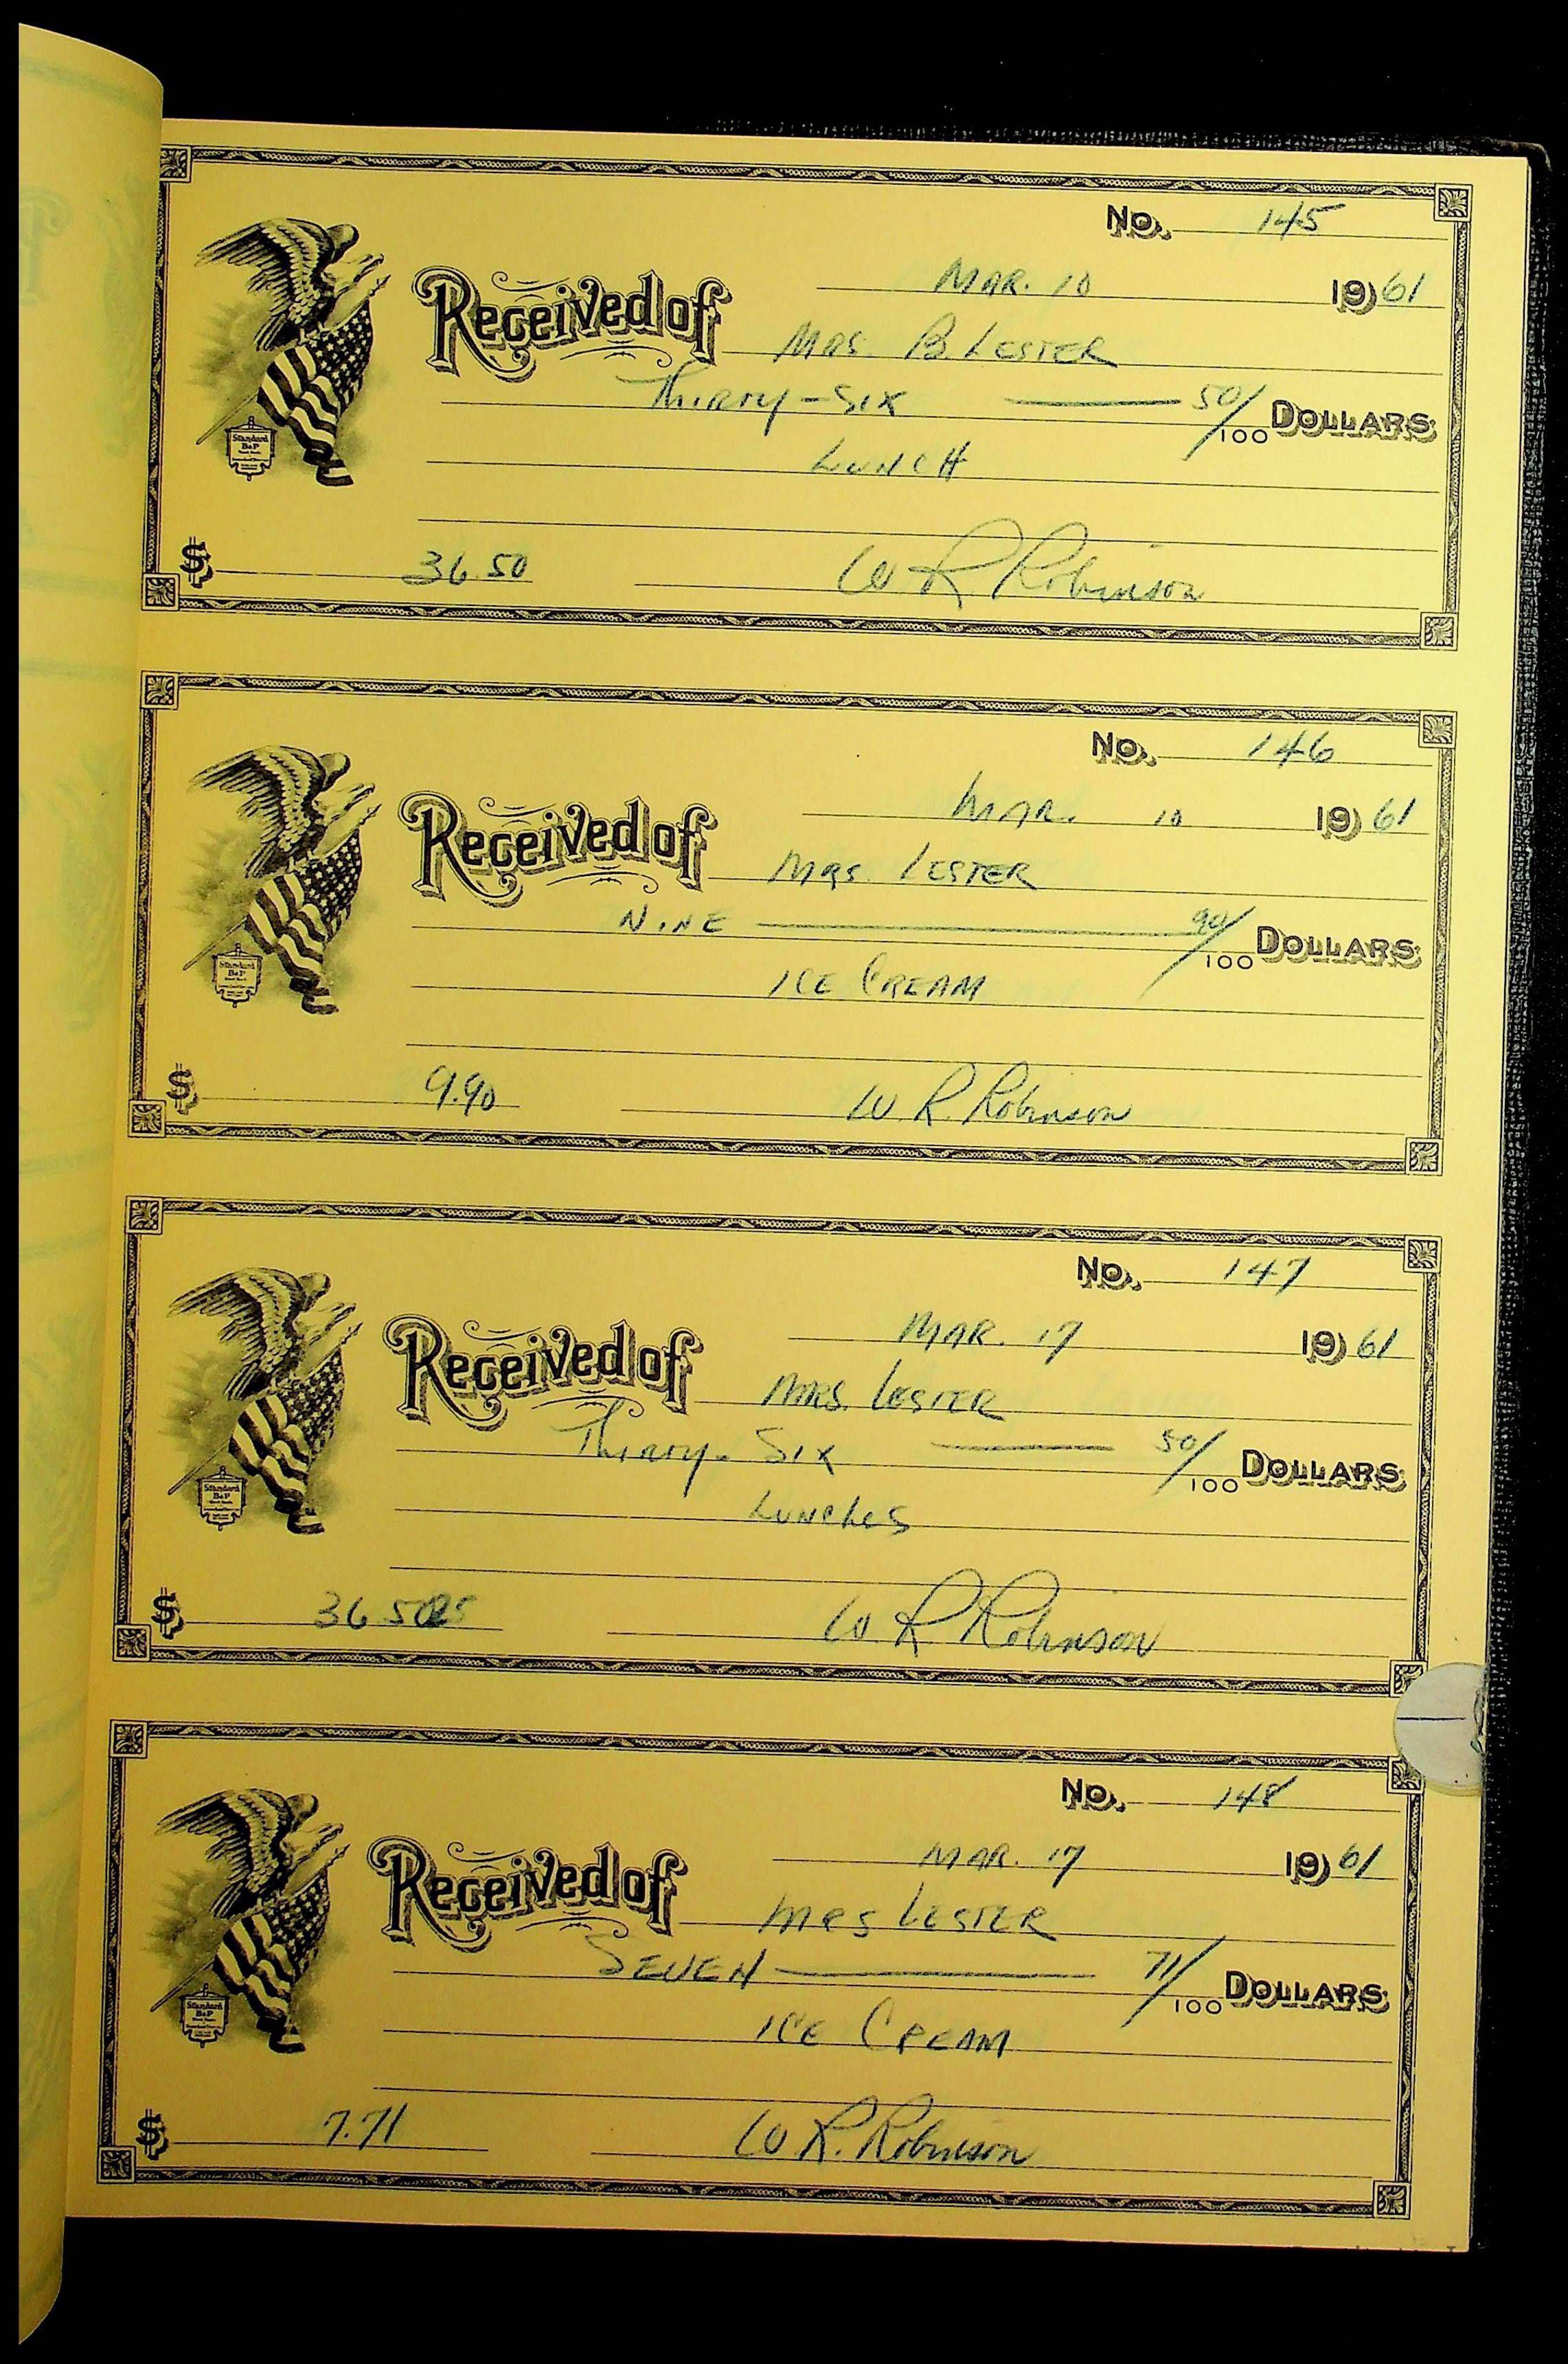 No. 145
MAR. 10 1961
Received of MRS. B LESTER
Thirty-Six 50/100 DOLLARS
LUNCH
$ 36.50 W. R. Robinson
Standard
B&P
No. 146
MAR. 10 1961
Received of MRS. LESTER
NINE 90/100 DOLLARS
ICE CREAM
$ 9.90 W. R. Robinson
Standard
B&P
No. 147
MAR. 17 1961
Received of MRS. LESTER
Thirty-Six 50/100 DOLLARS
LUNCHES
$ 36.50 W R Robinson
Standard
B&P
No. 148
MAR. 17 1961
Received of MRS LESTER
SEVEN 71/100 DOLLARS
ICE CREAM
$ 7.71 W. R. Robinson
Standard
B&P